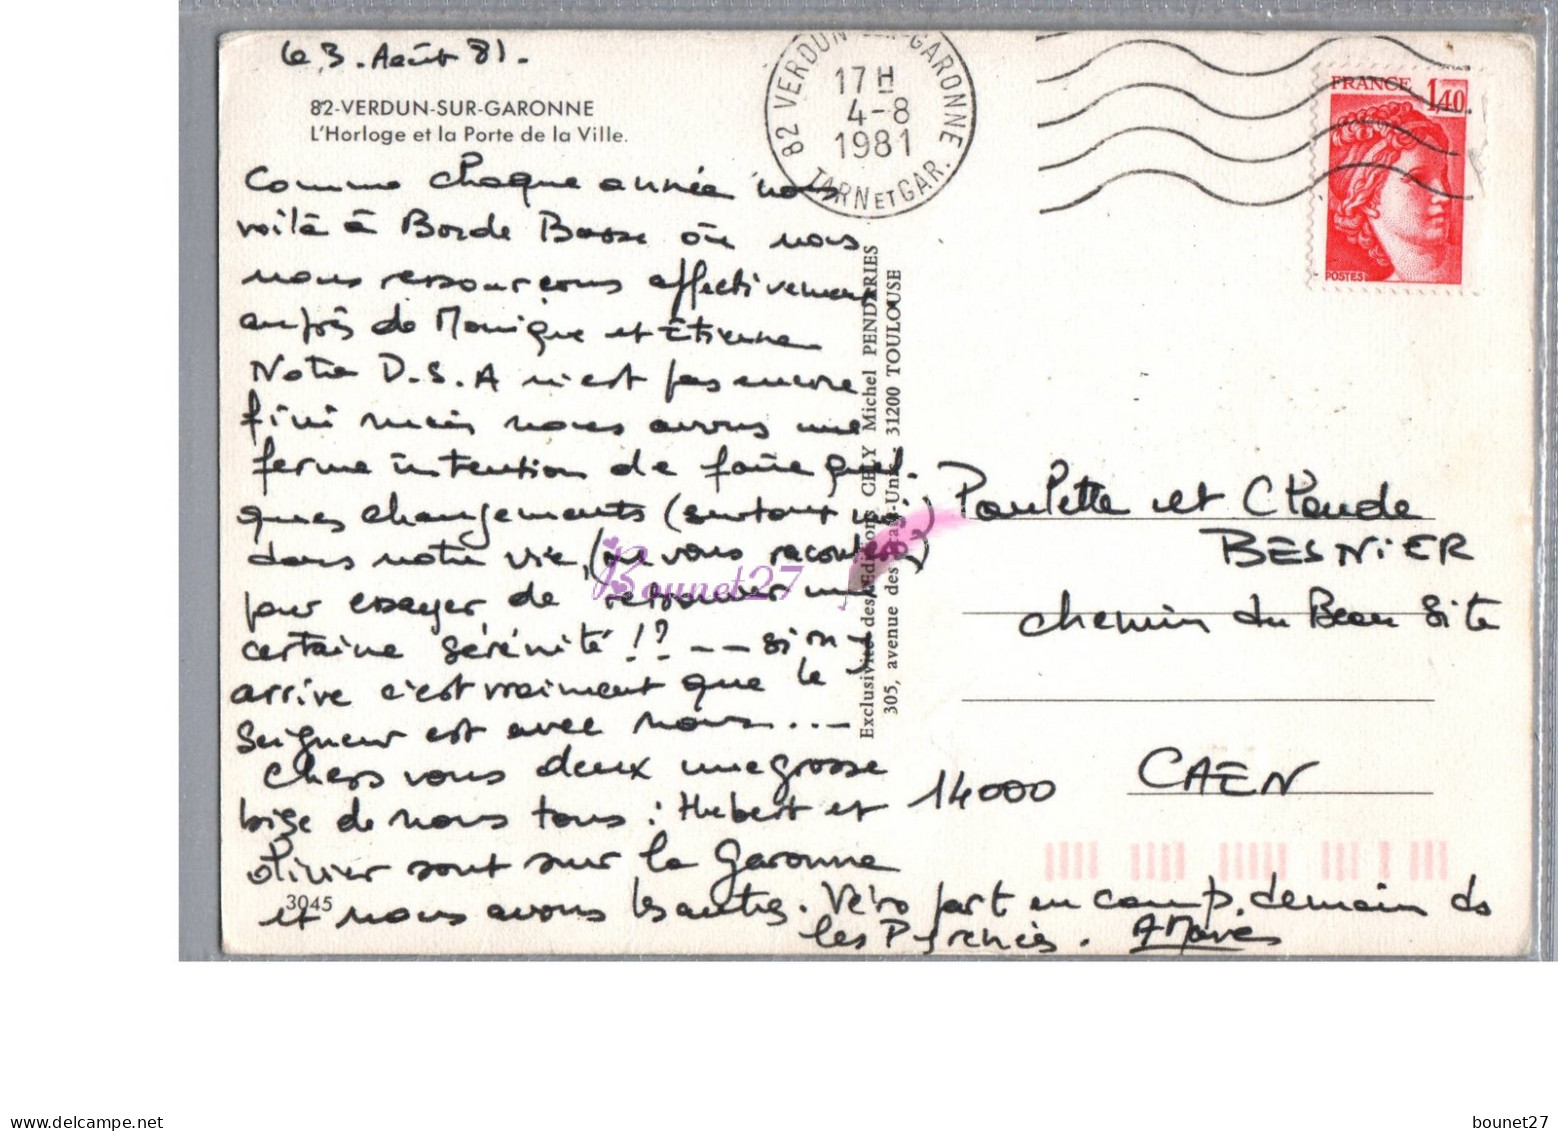 le 3. Août 81.
82-VERDUN-SUR-GARONNE
L'Horloge et la Porte de la Ville.
82 VERDUN SUR GARONNE
17 H
4-8
1981
TARN ET GAR.
FRANCE 1,40
POSTES
Comme chaque année nous
voilà à Borde Basse où nous
nous ressourçons effectivement
auprès de Monique et Étienne
Notre D.S.A n'est pas encore
fini mais nous avons une
ferme intention de faire quel-
ques changements (surtout moi)
dans notre vie, (je vous raconterai)
pour essayer de retrouver une
certaine sérénité !? -- si on y
arrive c'est vraiment que le
Seigneur est avec nous...
Chers vous deux une grosse
bise de nous tous : Hubert et
Olivier sont sur la Garonne
et nous avons les autres. Véro part en camp demain ds
les Pyrénées.
3045
Exclusivité des Editions CELY Michel PENDARIES
305, avenue des Etats-Unis 31200 TOULOUSE
Paulette et Claude
BESNIER
chemin du Beau Site
14000 CAEN
Bounet27
delcampe.net
bounet27